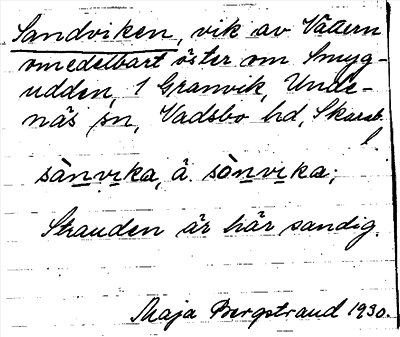 Sandviken, vik av Vättern
omedelbart öster om Smyg-
udden, 1 Granvik, Unde-
näs sn, Vadsbo hd, Skarab.
l.
sànvika, ä. sònvika;
Stranden är här sandig.
Maja Bergstrand 1930.